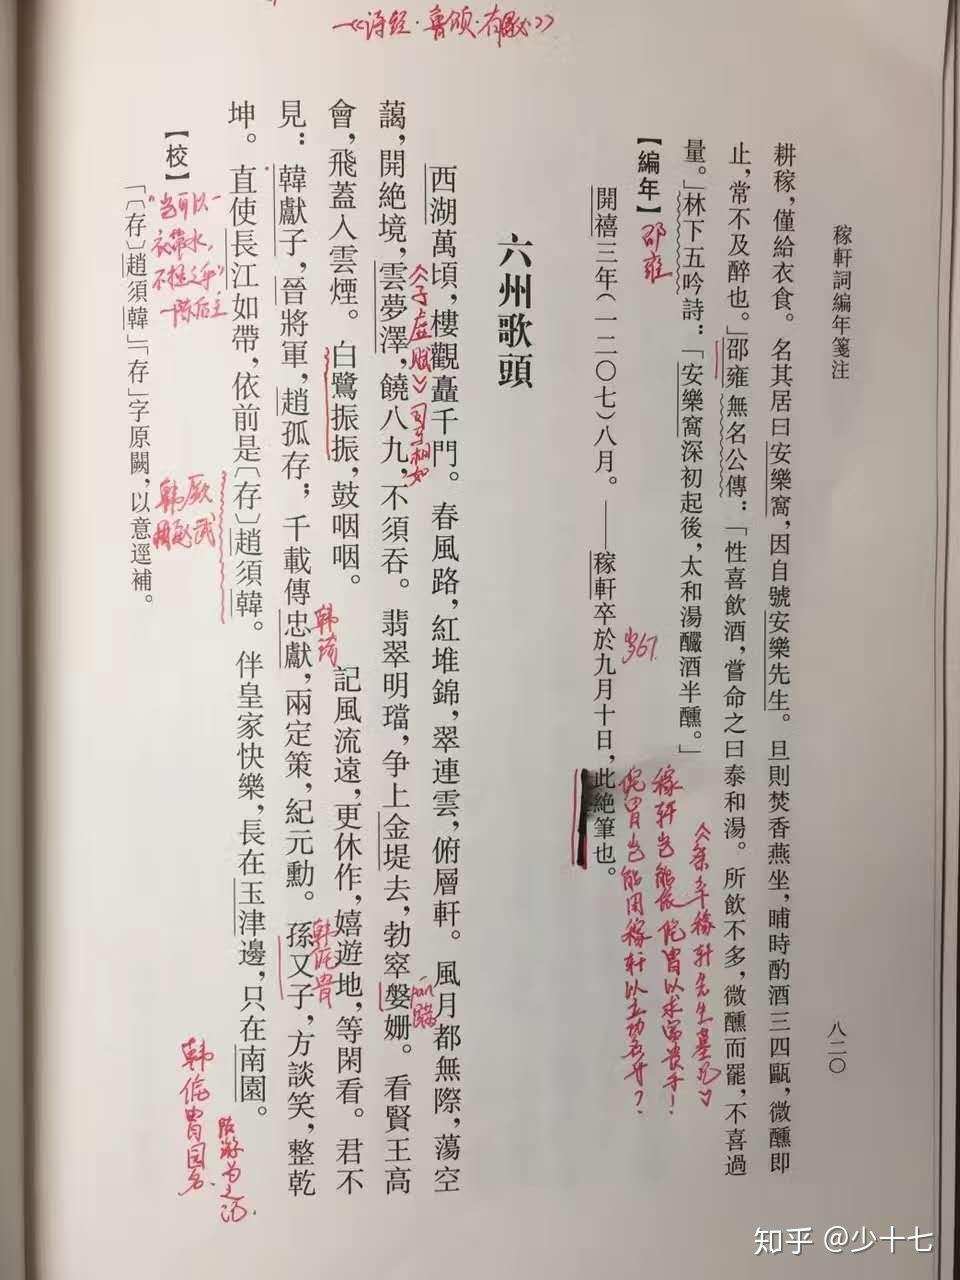 稼軒詞編年箋注
八二〇
耕稼，僅給衣食。名其居曰安樂窩，因自號安樂先生。旦則焚香燕坐，晡時酌酒三四甌，微醺即
止，常不及醉也。」邵雍無名公傳：「性喜飲酒，嘗命之曰泰和湯。所飲不多，微醺而罷，不喜過
量。」林下五吟詩：「安樂窩深初起後，太和湯釅酒半醺。」
【編年】
邵雍
開禧三年（一二〇七）八月。——稼軒卒於九月十日，此絕筆也。
歲67
《祭辛稼軒先生墓記》
稼軒豈能依侂胄以求富貴乎！
侂胄豈能用稼軒以立功名者？
六州歌頭
西湖萬頃，樓觀矗千門。春風路，紅堆錦，翠連雲，俯層軒。風月都無際，蕩空
藹，開絕境，雲夢澤，饒八九，不須吞。翡翠明璫，争上金堤去，勃窣媻姍。看賢王高
會，飛蓋入雲煙。白鷺振振，鼓咽咽。　記風流遠，更休作，嬉遊地，等閑看。君不
見：韓獻子，晉將軍，趙孤存；千載傳忠獻，兩定策，紀元勳。孫又子，方談笑，整乾
坤。直使長江如帶，依前是〔存〕趙須韓。伴皇家快樂，長在玉津邊，只在南園。
《子虛賦》司马相如
蹒跚
一《诗经·鲁颂·有駜》
韩琦
韩侂胄
"岂可以一
衣带水，
不拯之乎"
一陈后主
韩厥
韩侂胄园名
陆游为之记.
【校】
「〔存〕趙須韓」「存」字原闕，以意逕補。
知乎 @少十七